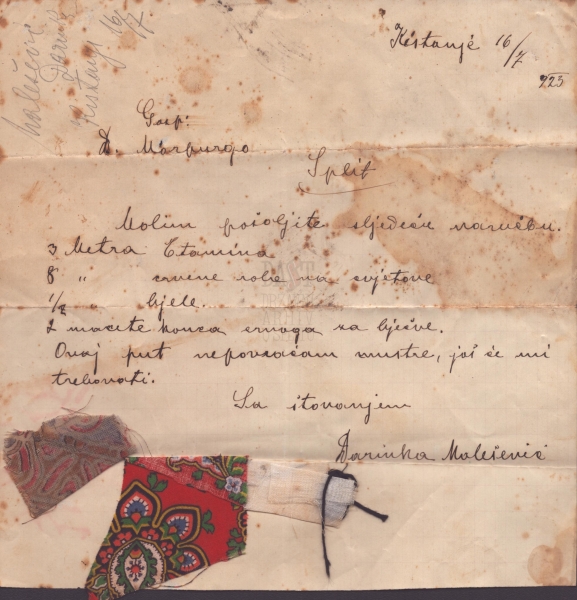 Malešević
Darinka
Kistanje 16/7
Kistanjē 16/7
923
Gosp:
D. Marpurgo
Split
Molim pošaljite sljedeću narudžbu.
3 Metra Etamina
8 " crvene robe na cvjetove
1/2 " bjele.
2 macete konca crnoga za bječve.
Ovaj put nepovraćam mustre, još će mi
trebovati.
Sa štovanjem
Darinka Malešević